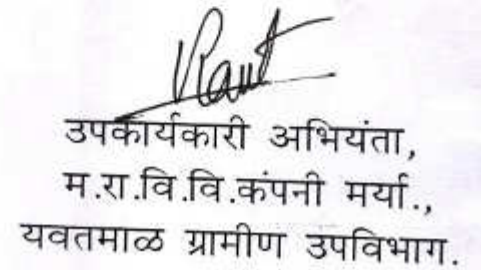 उपकार्यकारी अभियंता,
म.रा.वि.वि.कंपनी मर्या.,
यवतमाळ ग्रामीण उपविभाग.